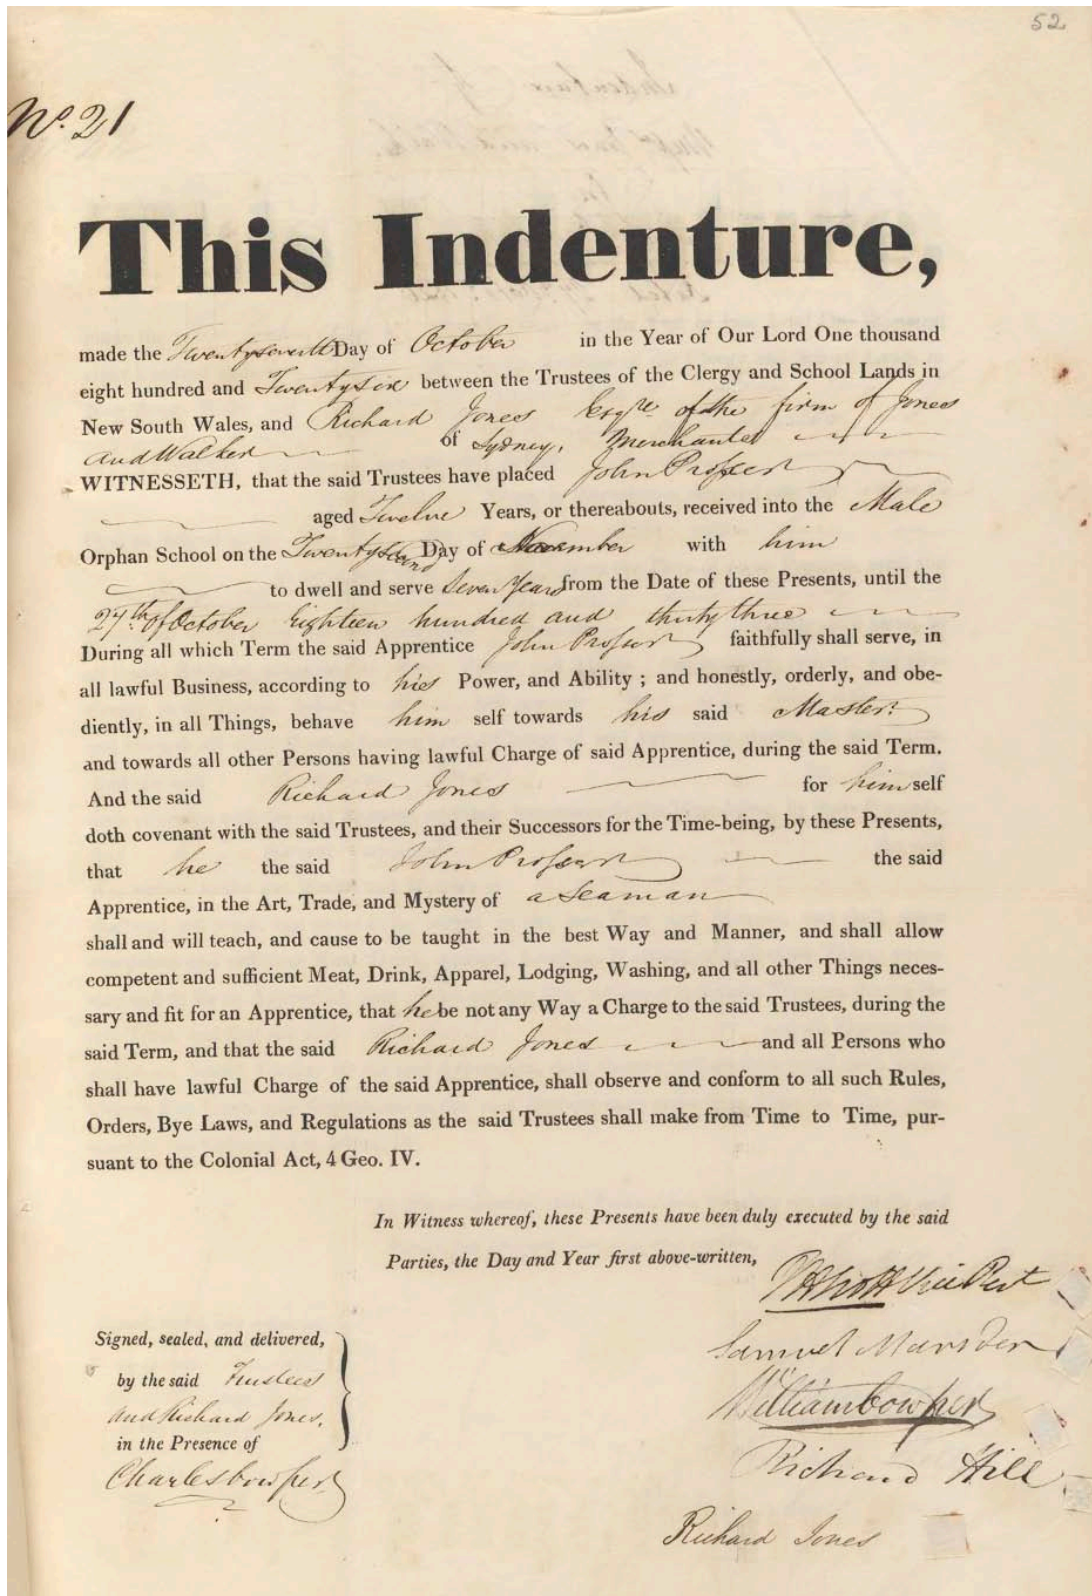 52
No. 21
This Indenture,
made the Twentyseventh Day of October in the Year of Our Lord One thousand
eight hundred and Twentysix between the Trustees of the Clergy and School Lands in
New South Wales, and Richard Jones Esqre of the firm of Jones
and Walker of Sydney, Merchants
WITNESSETH, that the said Trustees have placed John Prosser
aged Twelve Years, or thereabouts, received into the Male
Orphan School on the Twentysecond Day of November with him
to dwell and serve Seven Years from the Date of these Presents, until the
27th of October Eighteen hundred and thirty three
During all which Term the said Apprentice John Prosser faithfully shall serve, in
all lawful Business, according to his Power, and Ability ; and honestly, orderly, and obe-
diently, in all Things, behave him self towards his said Master
and towards all other Persons having lawful Charge of said Apprentice, during the said Term.
And the said Richard Jones for him self
doth covenant with the said Trustees, and their Successors for the Time-being, by these Presents,
that he the said John Prosser the said
Apprentice, in the Art, Trade, and Mystery of a Seaman
shall and will teach, and cause to be taught in the best Way and Manner, and shall allow
competent and sufficient Meat, Drink, Apparel, Lodging, Washing, and all other Things neces-
sary and fit for an Apprentice, that he be not any Way a Charge to the said Trustees, during the
said Term, and that the said Richard Jones and all Persons who
shall have lawful Charge of the said Apprentice, shall observe and conform to all such Rules,
Orders, Bye Laws, and Regulations as the said Trustees shall make from Time to Time, pur-
suant to the Colonial Act, 4 Geo. IV.
In Witness whereof, these Presents have been duly executed by the said
Parties, the Day and Year first above-written,
Signed, sealed, and delivered,
by the said Trustees
and Richard Jones,
in the Presence of
Charles Cowper
Samuel Marsden
William Cowper
Richard Hill
Richard Jones